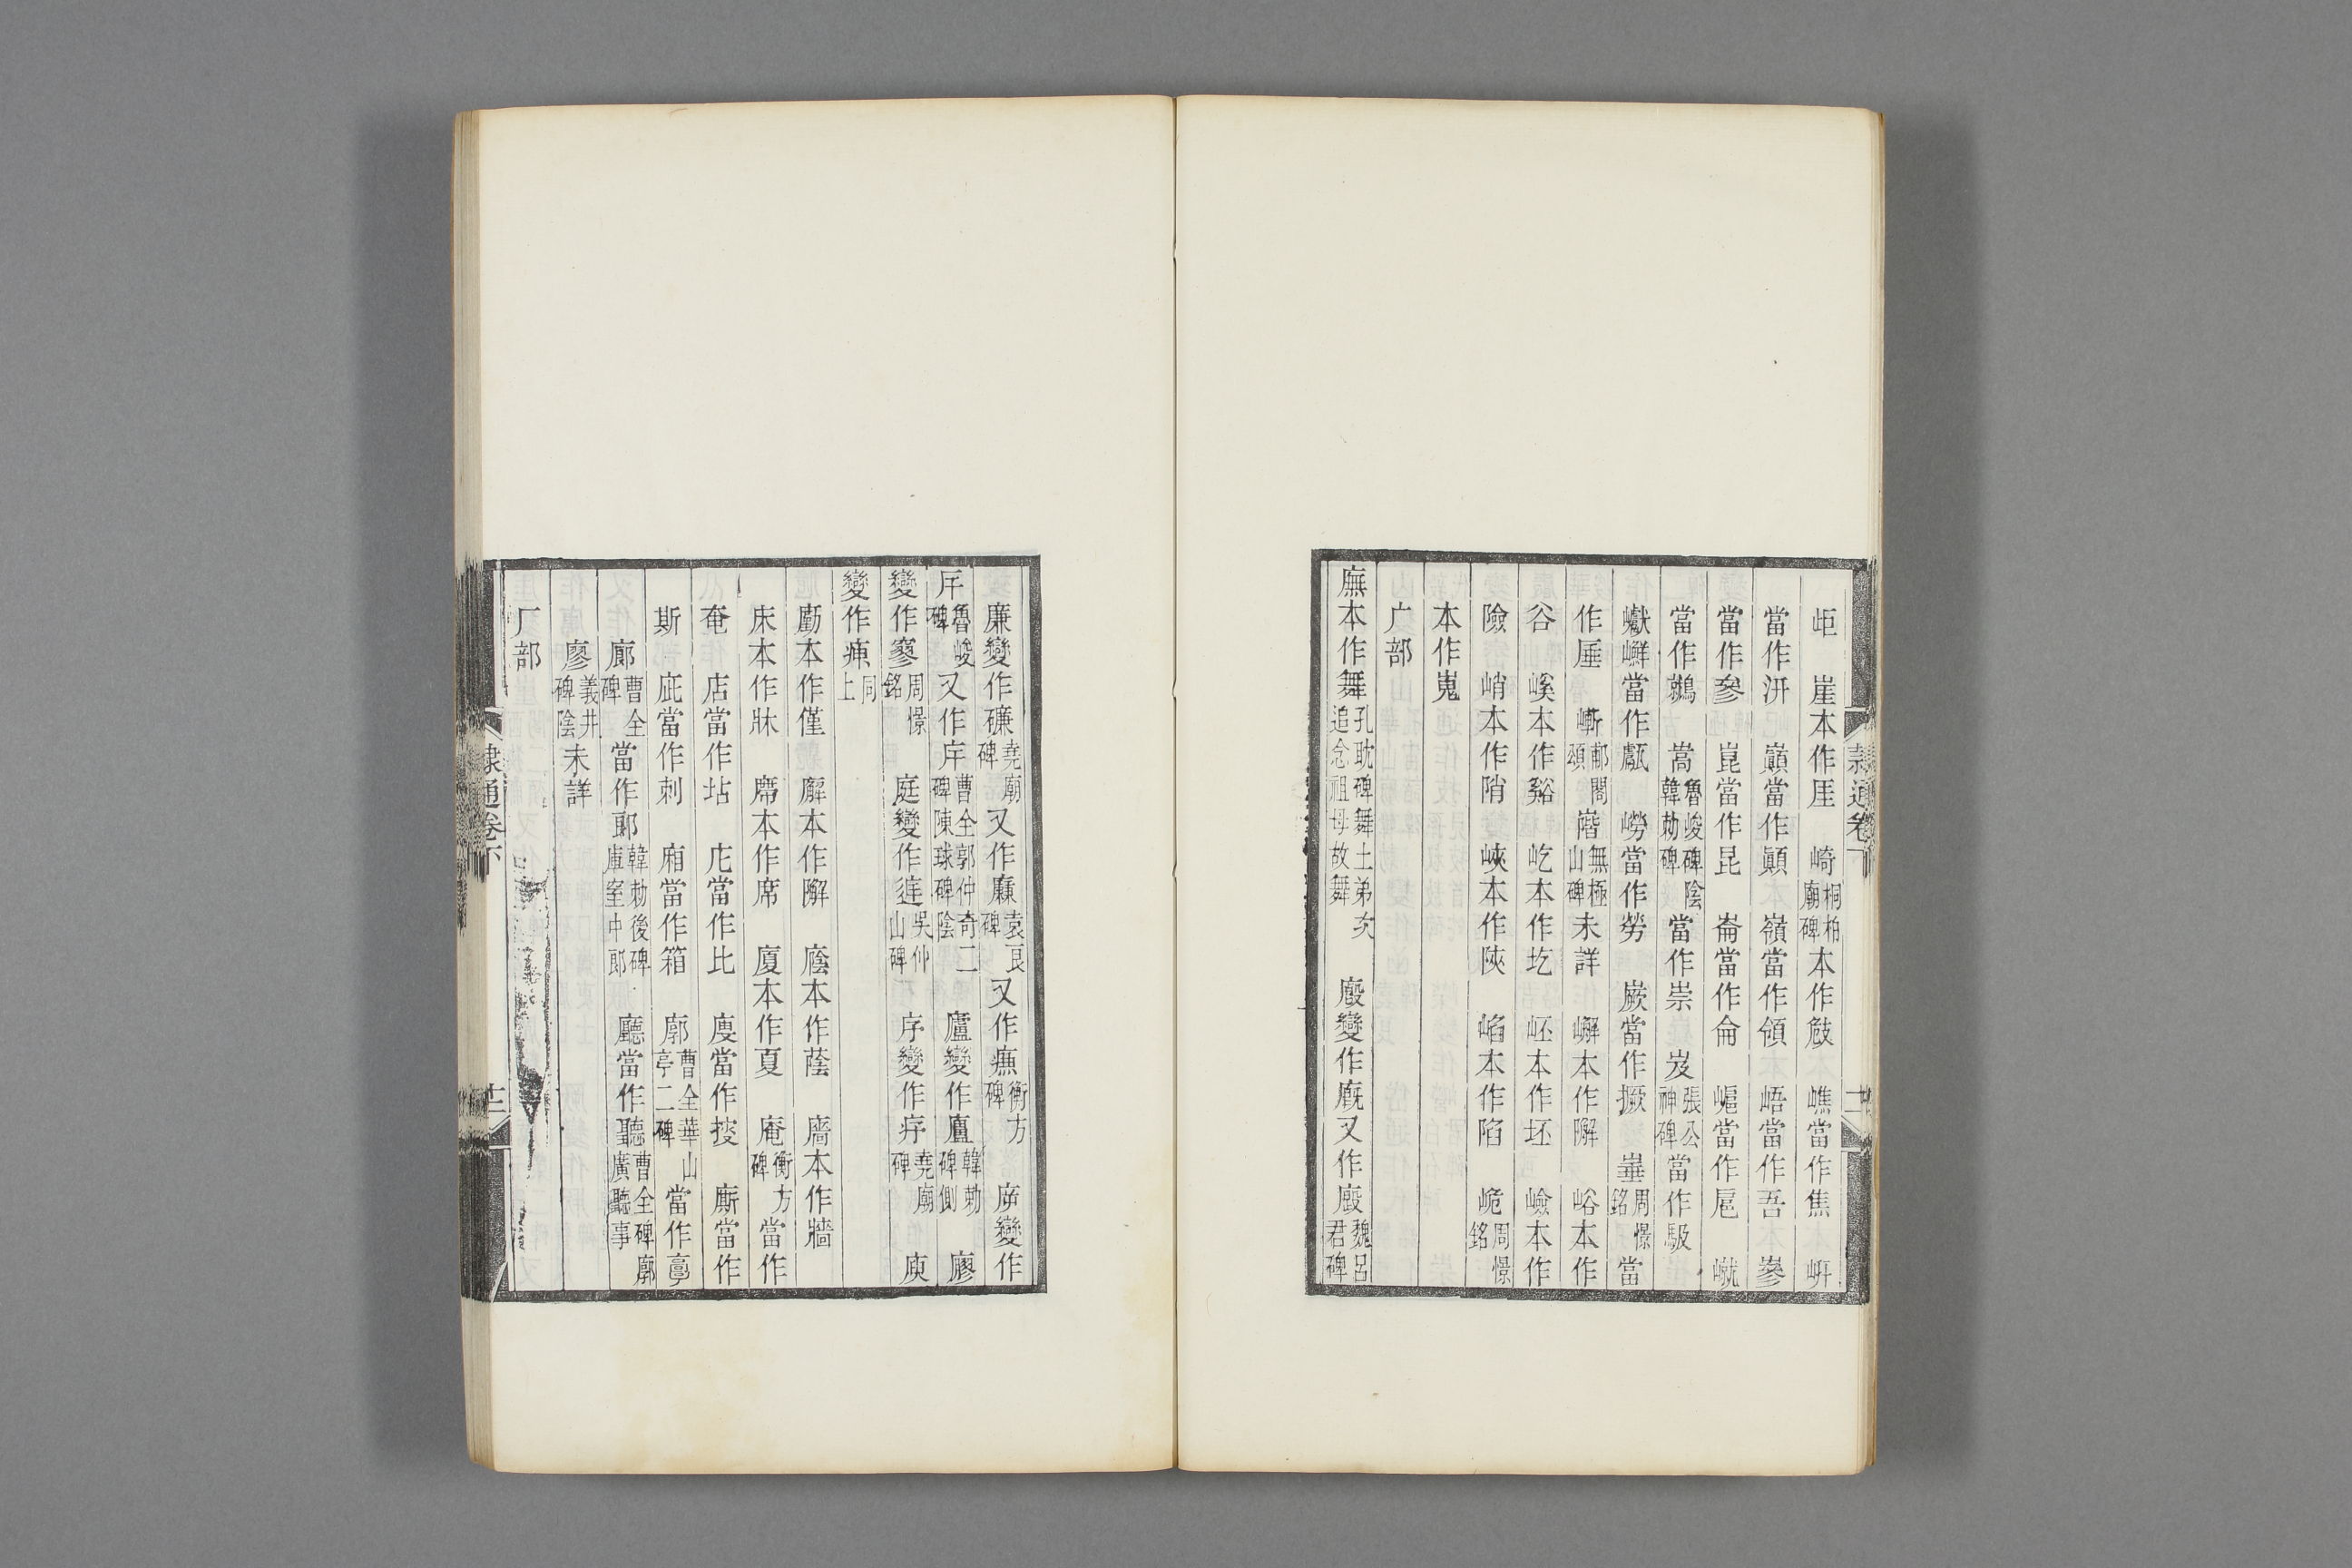 岠　崖本作厓　崎桐柏廟碑本作㩻　嶕當作焦　岍
當作汧　巔當作顚　嶺當作領　峿當作吾　嵾
當作參　崑當作昆　崙當作侖　㠇當作扈　㠇
當作鷲　嵩魯峻碑陰韓勑碑當作崇　岌張公神碑當作馺
巘㠢當作甗　嶗當作勞　嶡當作撅　崋周憬銘當
作厜　嶃郙閣頌㟡無極山碑未詳　嶰本作澥　峪本作
谷　嵠本作谿　屹本作圪　岯本作坯　嶮本作
險　峭本作陗　峽本作陝　㟴本作陷　峗周憬銘
本作嵬
广部
廡本作舞孔耽碑舞土弟次追念祖母故舞　廏變作廐又作廄魏呂君碑
隷通卷下
廉變作磏堯廟碑又作㢘袁良碑又作㾾衡方碑　庌變作
庌魯峻碑又作庠曹全郭仲奇二碑陳球碑陰　廬變作廬韓勑碑側　廫
變作寥周憬銘　庭變作莛吳仲山碑　序變作㾕堯廟碑　庾
變作㾱同上
廑本作僅　廨本作澥　廕本作蔭　廧本作牆
床本作牀　廗本作席　廈本作夏　庵衡方碑當作
奄　店當作坫　庀當作比　廀當作㨃　廝當作
斯　庛當作刺　廂當作箱　廓曹全華山亭二碑當作𩫏
廊曹全碑當作郎韓勑後碑庫室中郎　廳當作聽曹全碑廓廣聽事
廖義井碑陰未詳
厂部
隷通卷下